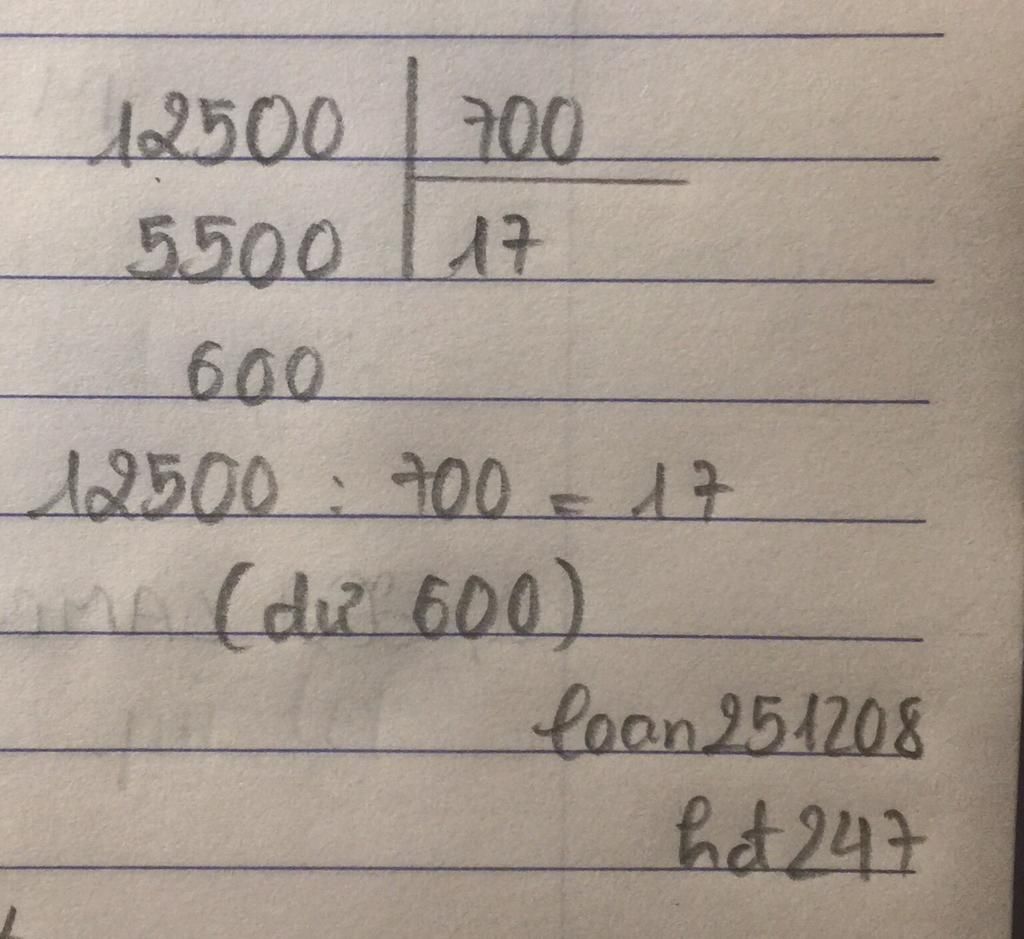 12500 | 700
5500 | 17
600
12500 : 700 = 17
(dư 600)
loan251208
hdt247